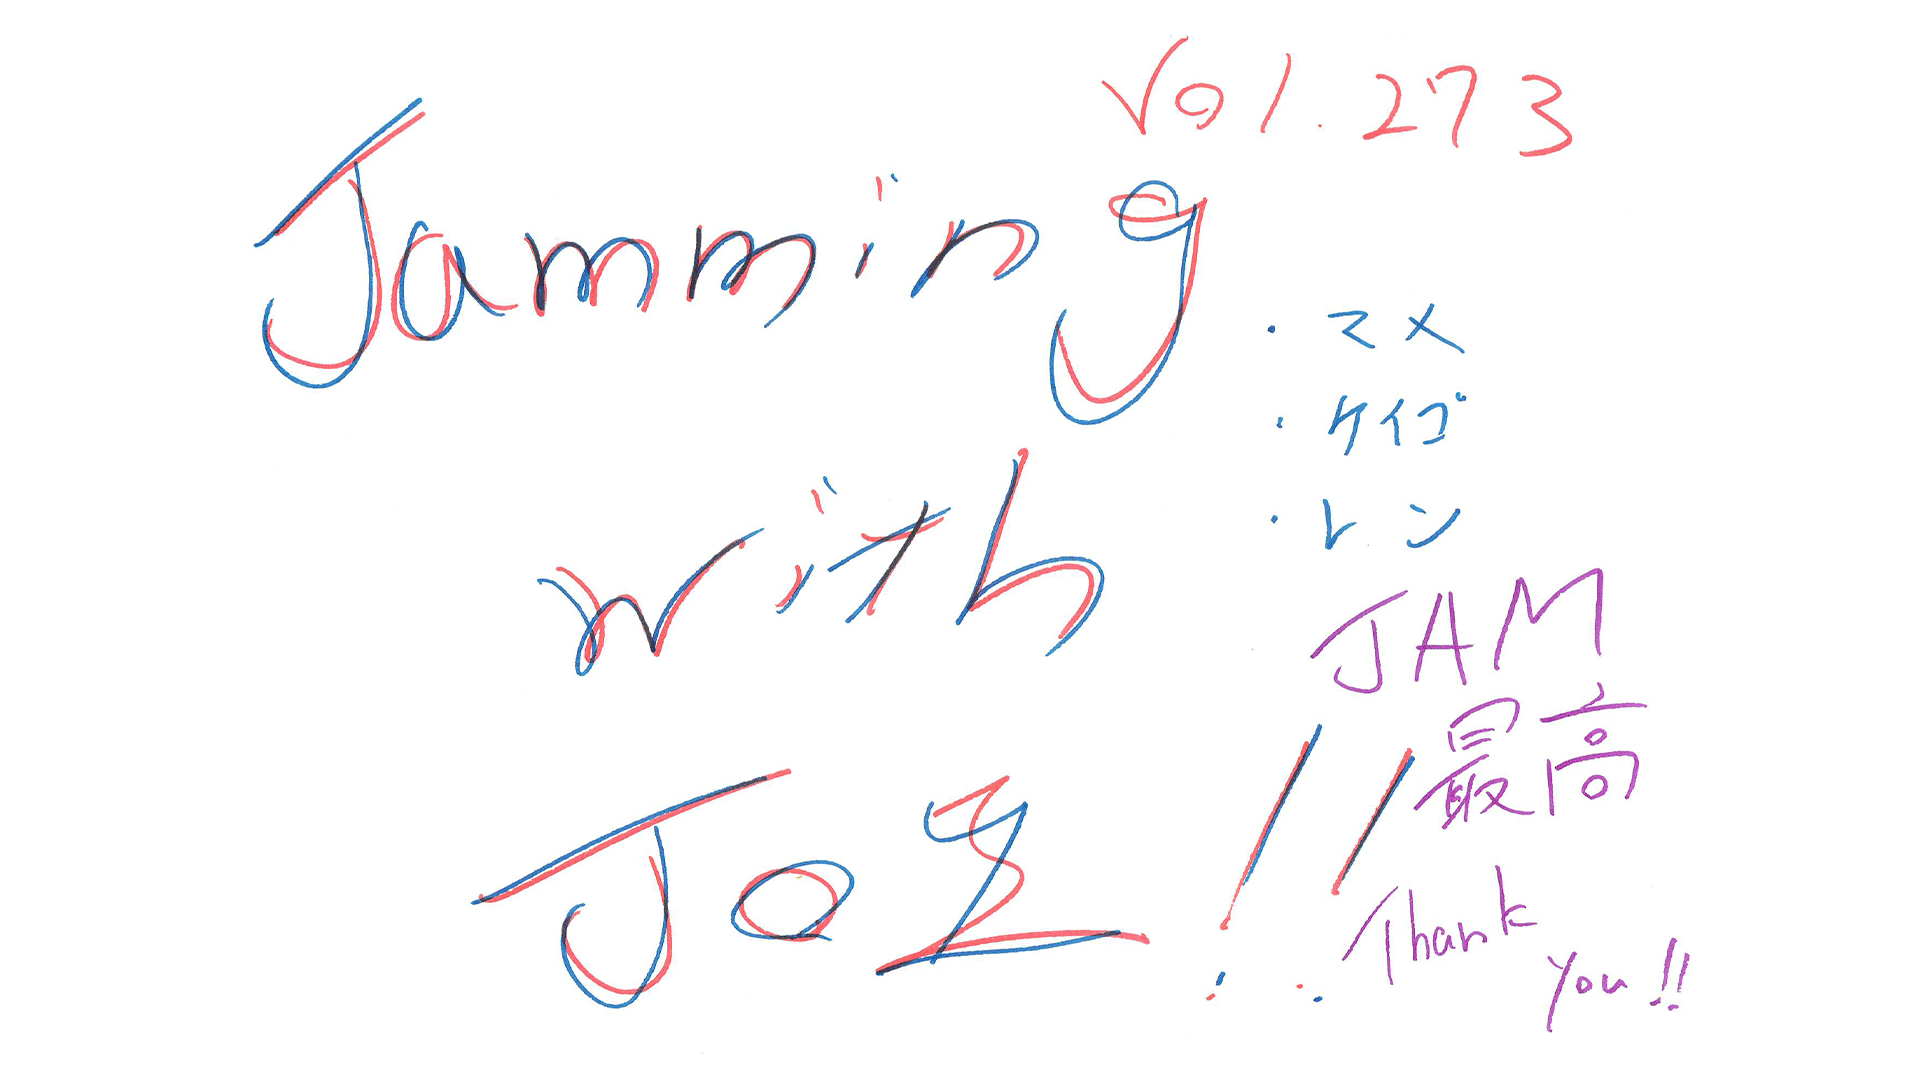 Vol.273
Jamming
with
Joえ!!
・マメ
・ケイゴ
・レン
JAM
最高
Thank
you!!